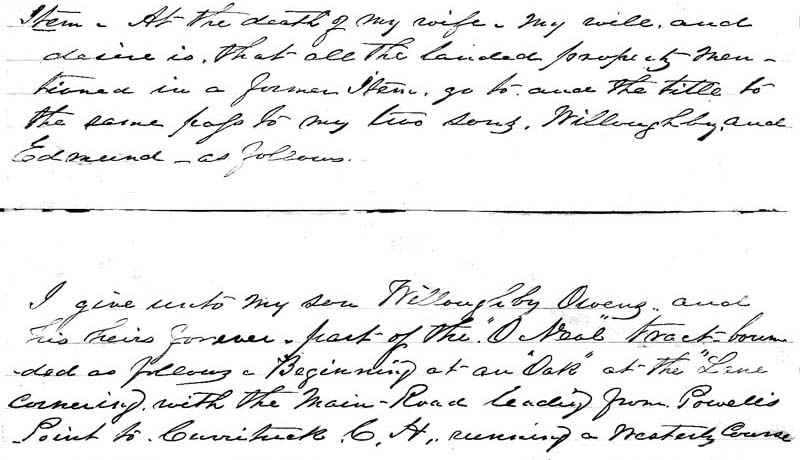 Item - At the death of my wife - my will, and
desire is, that all the landed property men -
tioned in a former Item, go to and the title to
the same pass to my two sons, Willoughby, and
Edmund - as follows.
I give unto my son Willoughby Owens, and
his heirs forever - part of the "O Neal" tract - boun
-ded as follows - Beginning at an "Oak" at the "Lane
cornering, with the Main - Road leading from Powells
Point to Currituck C. H., running a Westerly Course